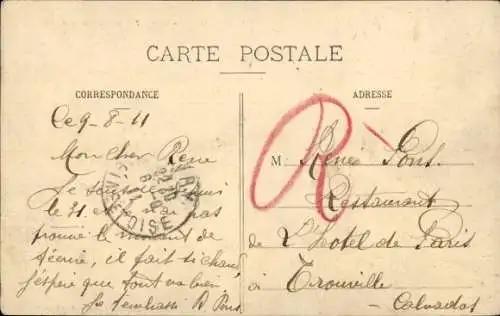 CARTE POSTALE
CORRESPONDANCE
ADRESSE
Ce 9-8-11
Mon cher Rene
Je suis ici depuis
le 31 et je n'ai pas
trouvé le moment de
t'écrire, il fait si chaud
j'espère que tout va bien
Je t'embrasse R Pons
R
M. René Pons
Restaurant
de L'Hotel de Paris
à Trouville
Calvados
OISE